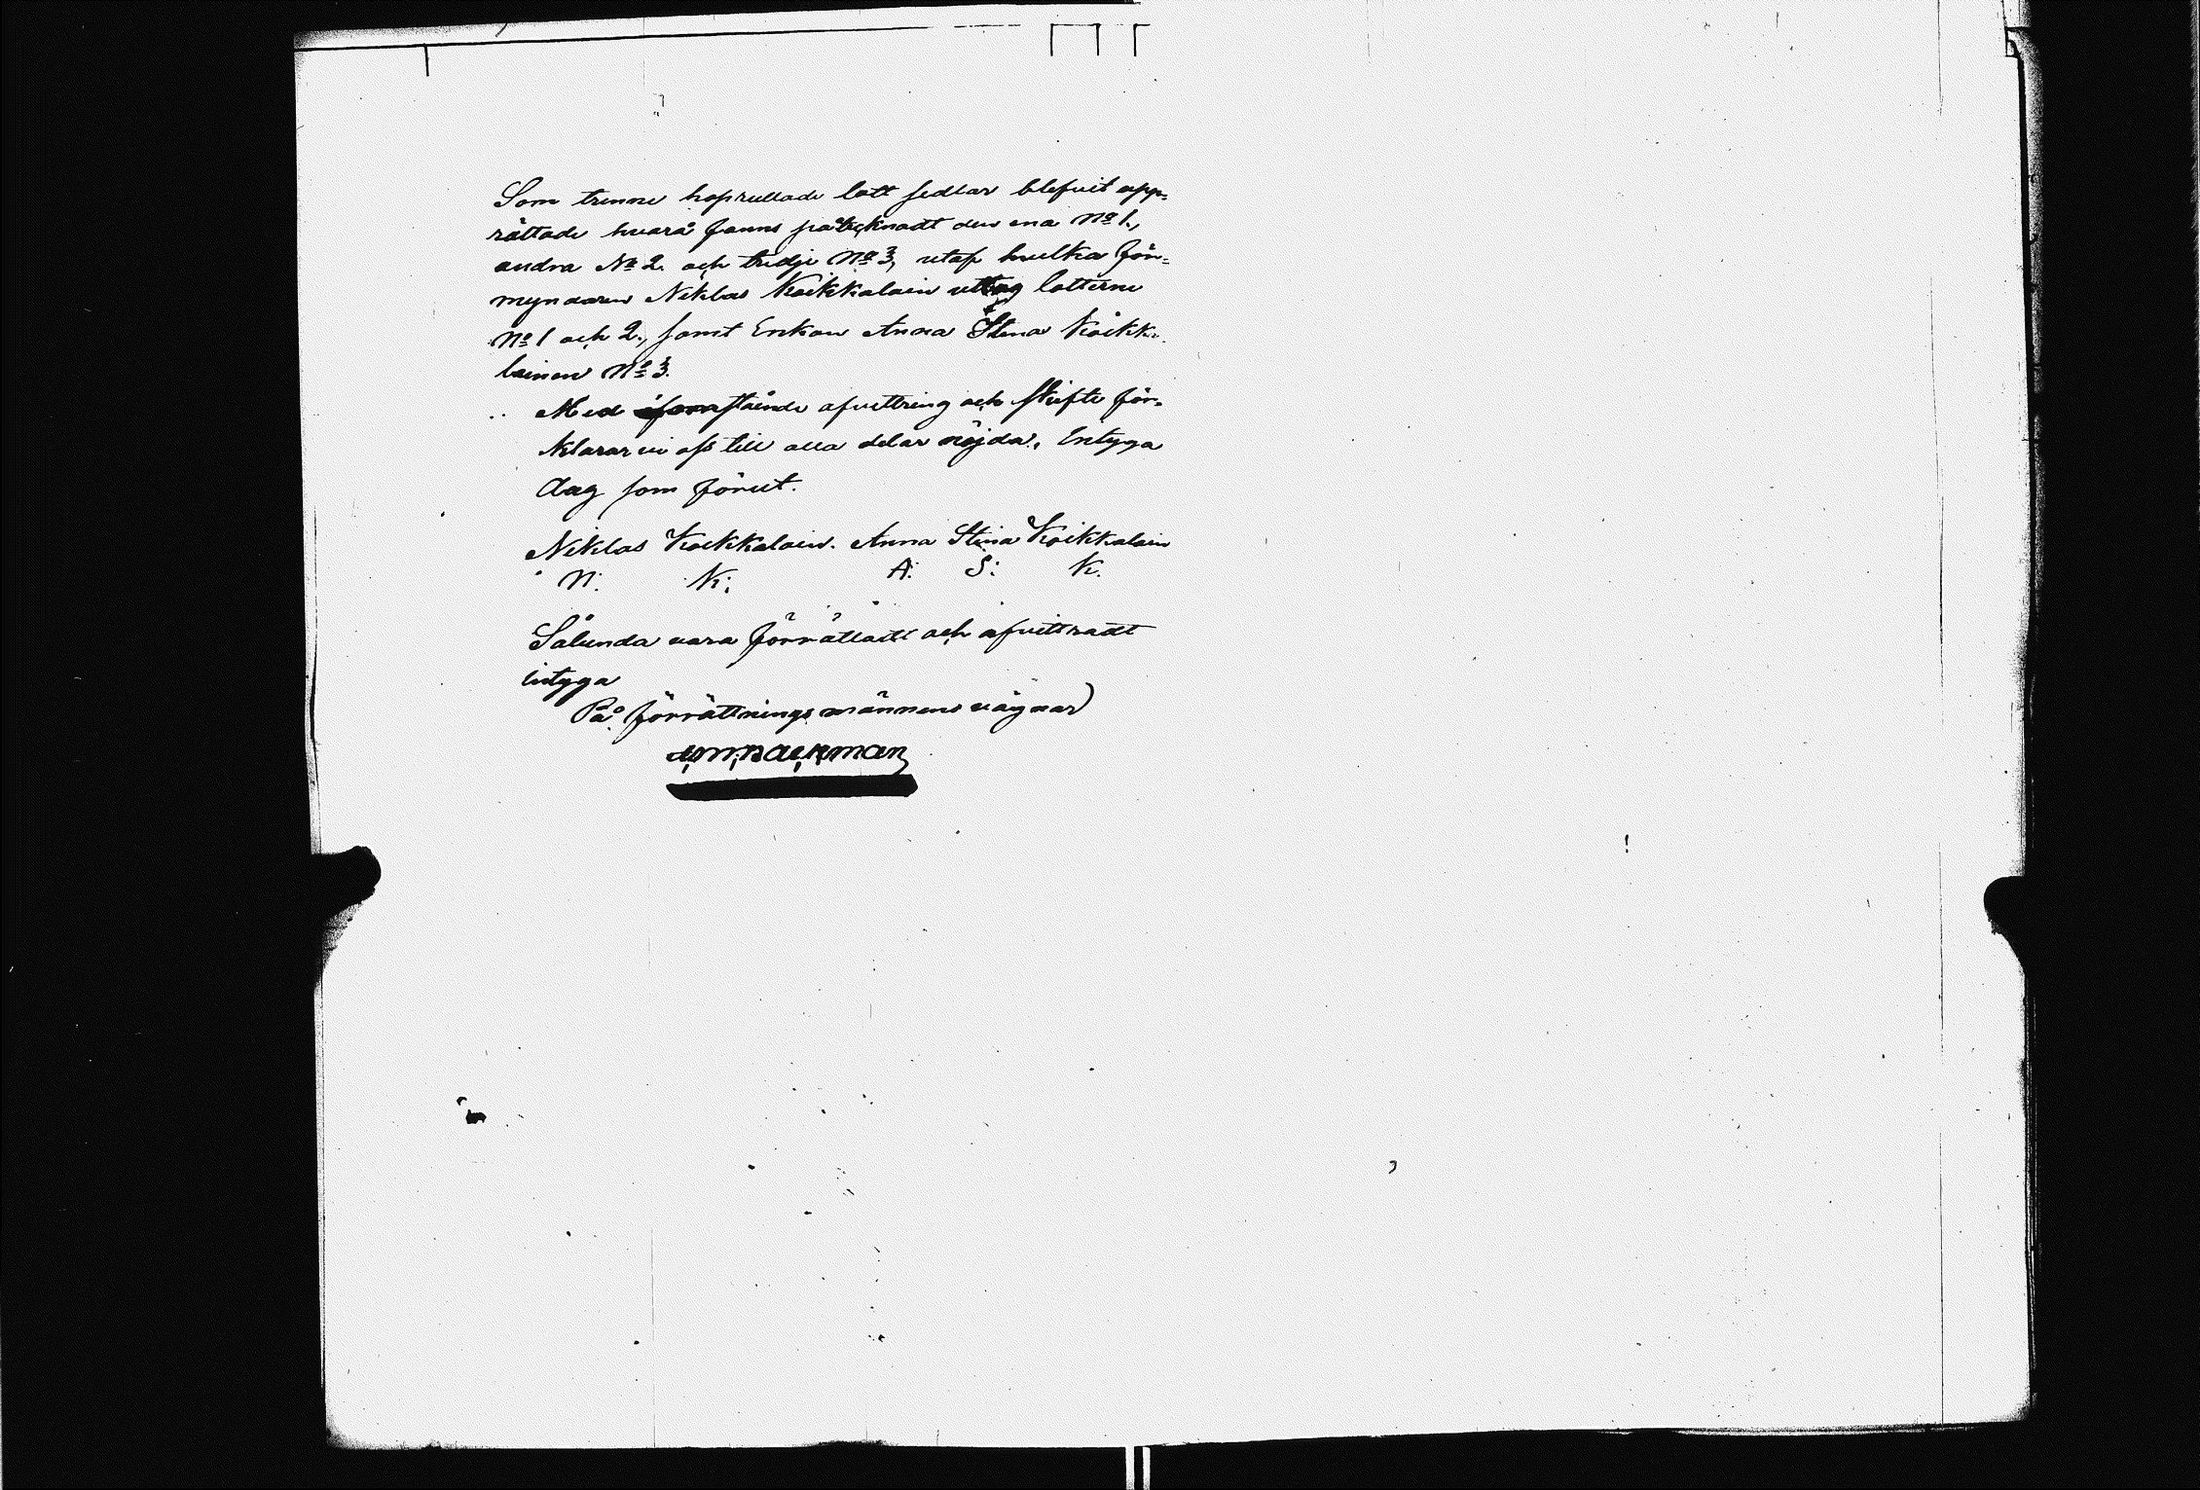 Som trenne hoprullade lott sedlar blefvit upp-
rättade hvarå fanns påtecknadt den ena No 1.,
andra No 2. och tridje No 3, utaf hvilka För-
myndaren Niklas Koikkalain uttog lotterne
No 1 och 2., samt Enkan Anna Stina Koikka-
lainen No 3.
Med ofvanstående afvittring och skifte för-
klarar vi oss till alla delar nöjda. Intyga
dag som förut.
Niklas Koikkalain. Anna Stina Koikkalain
N. K: A: S: K.
Sålunda vara förrättadt och afvittradt
intyga
På förrättningsmännens vägnar
Backman